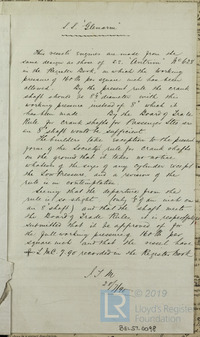 S.S. "Glenavin"
This vessels engines are made from the
same design as those of S.S. "Antrim" No 628
in the Register Book, in which the working
pressure of 160 lbs per square inch has been
allowed. By the present rule the crank
shaft should be 8⅜ diameter with this
working pressure instead of 8" which it
has been made. By the Board of Trade
Rule for crank shafts for Passenger Str.
an 8" shaft would be sufficient.
The makers take exception to the present
form of the Society's rule for crank shafts
on the ground that it takes no notice
whatever of the size of any cylinder except
the Low Pressure, and a revision of the
rule is in contemplation.
Seeing that the departure from the
rule is so slight (only ⅜ of an inch on
an 8" shaft) and that the shaft meets
the Board of Trade Rules, it is respectfully
submitted that it be approved of for
the full working pressure of 160 lbs per
square inch and that the vessel have
+ LMC 7.90 recorded in the Register Book.
© 2019
Lloyd's Register
Foundation